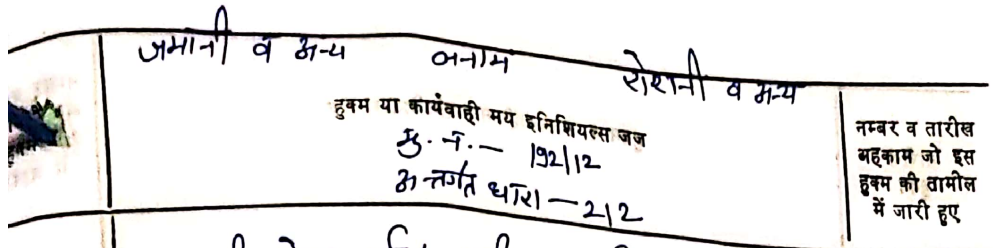 जमानी व अन्य बनाम रोशनी व अन्य
हुक्म या कार्यवाही मय इनिशियल्स जज
मु. नं. – 192/12
अन्तर्गत धारा – 212
नम्बर व तारीख
अहकाम जो इस
हुक्म की तामील
में जारी हुए